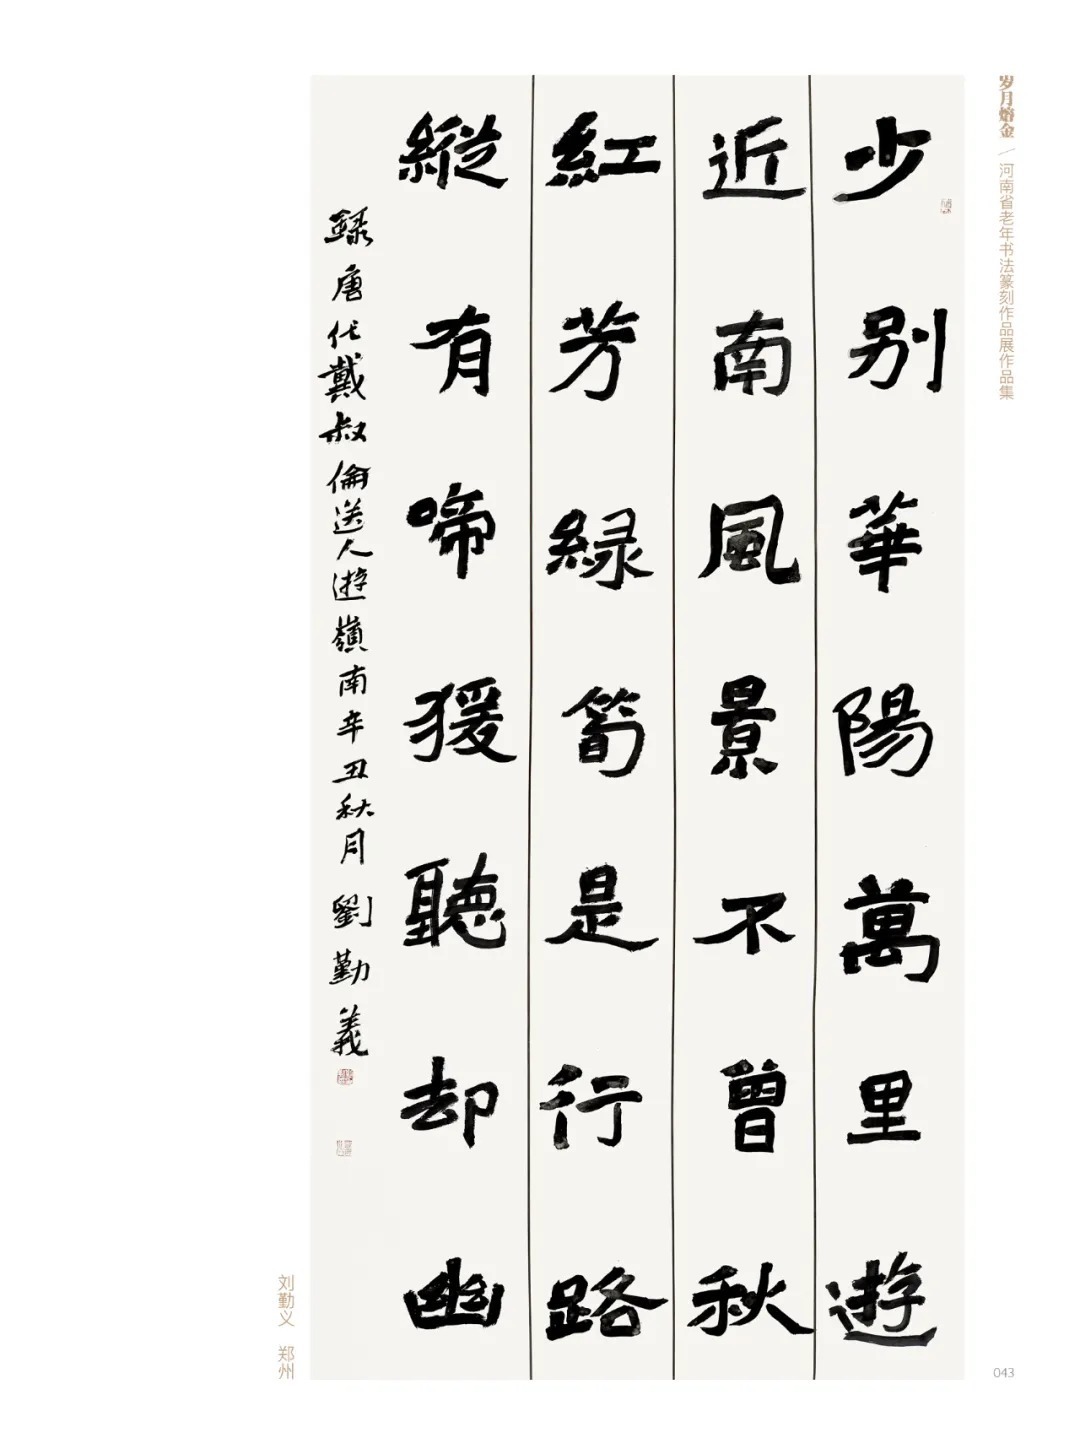 少别華陽萬里遊
近南風景不曾秋
紅芳緑筍是行路
縱有啼猨聽却幽
録唐代戴叔倫送人遊嶺南辛丑秋月劉勤義
岁月熔金／河南省老年书法篆刻作品展作品集
刘勤义 郑州
043